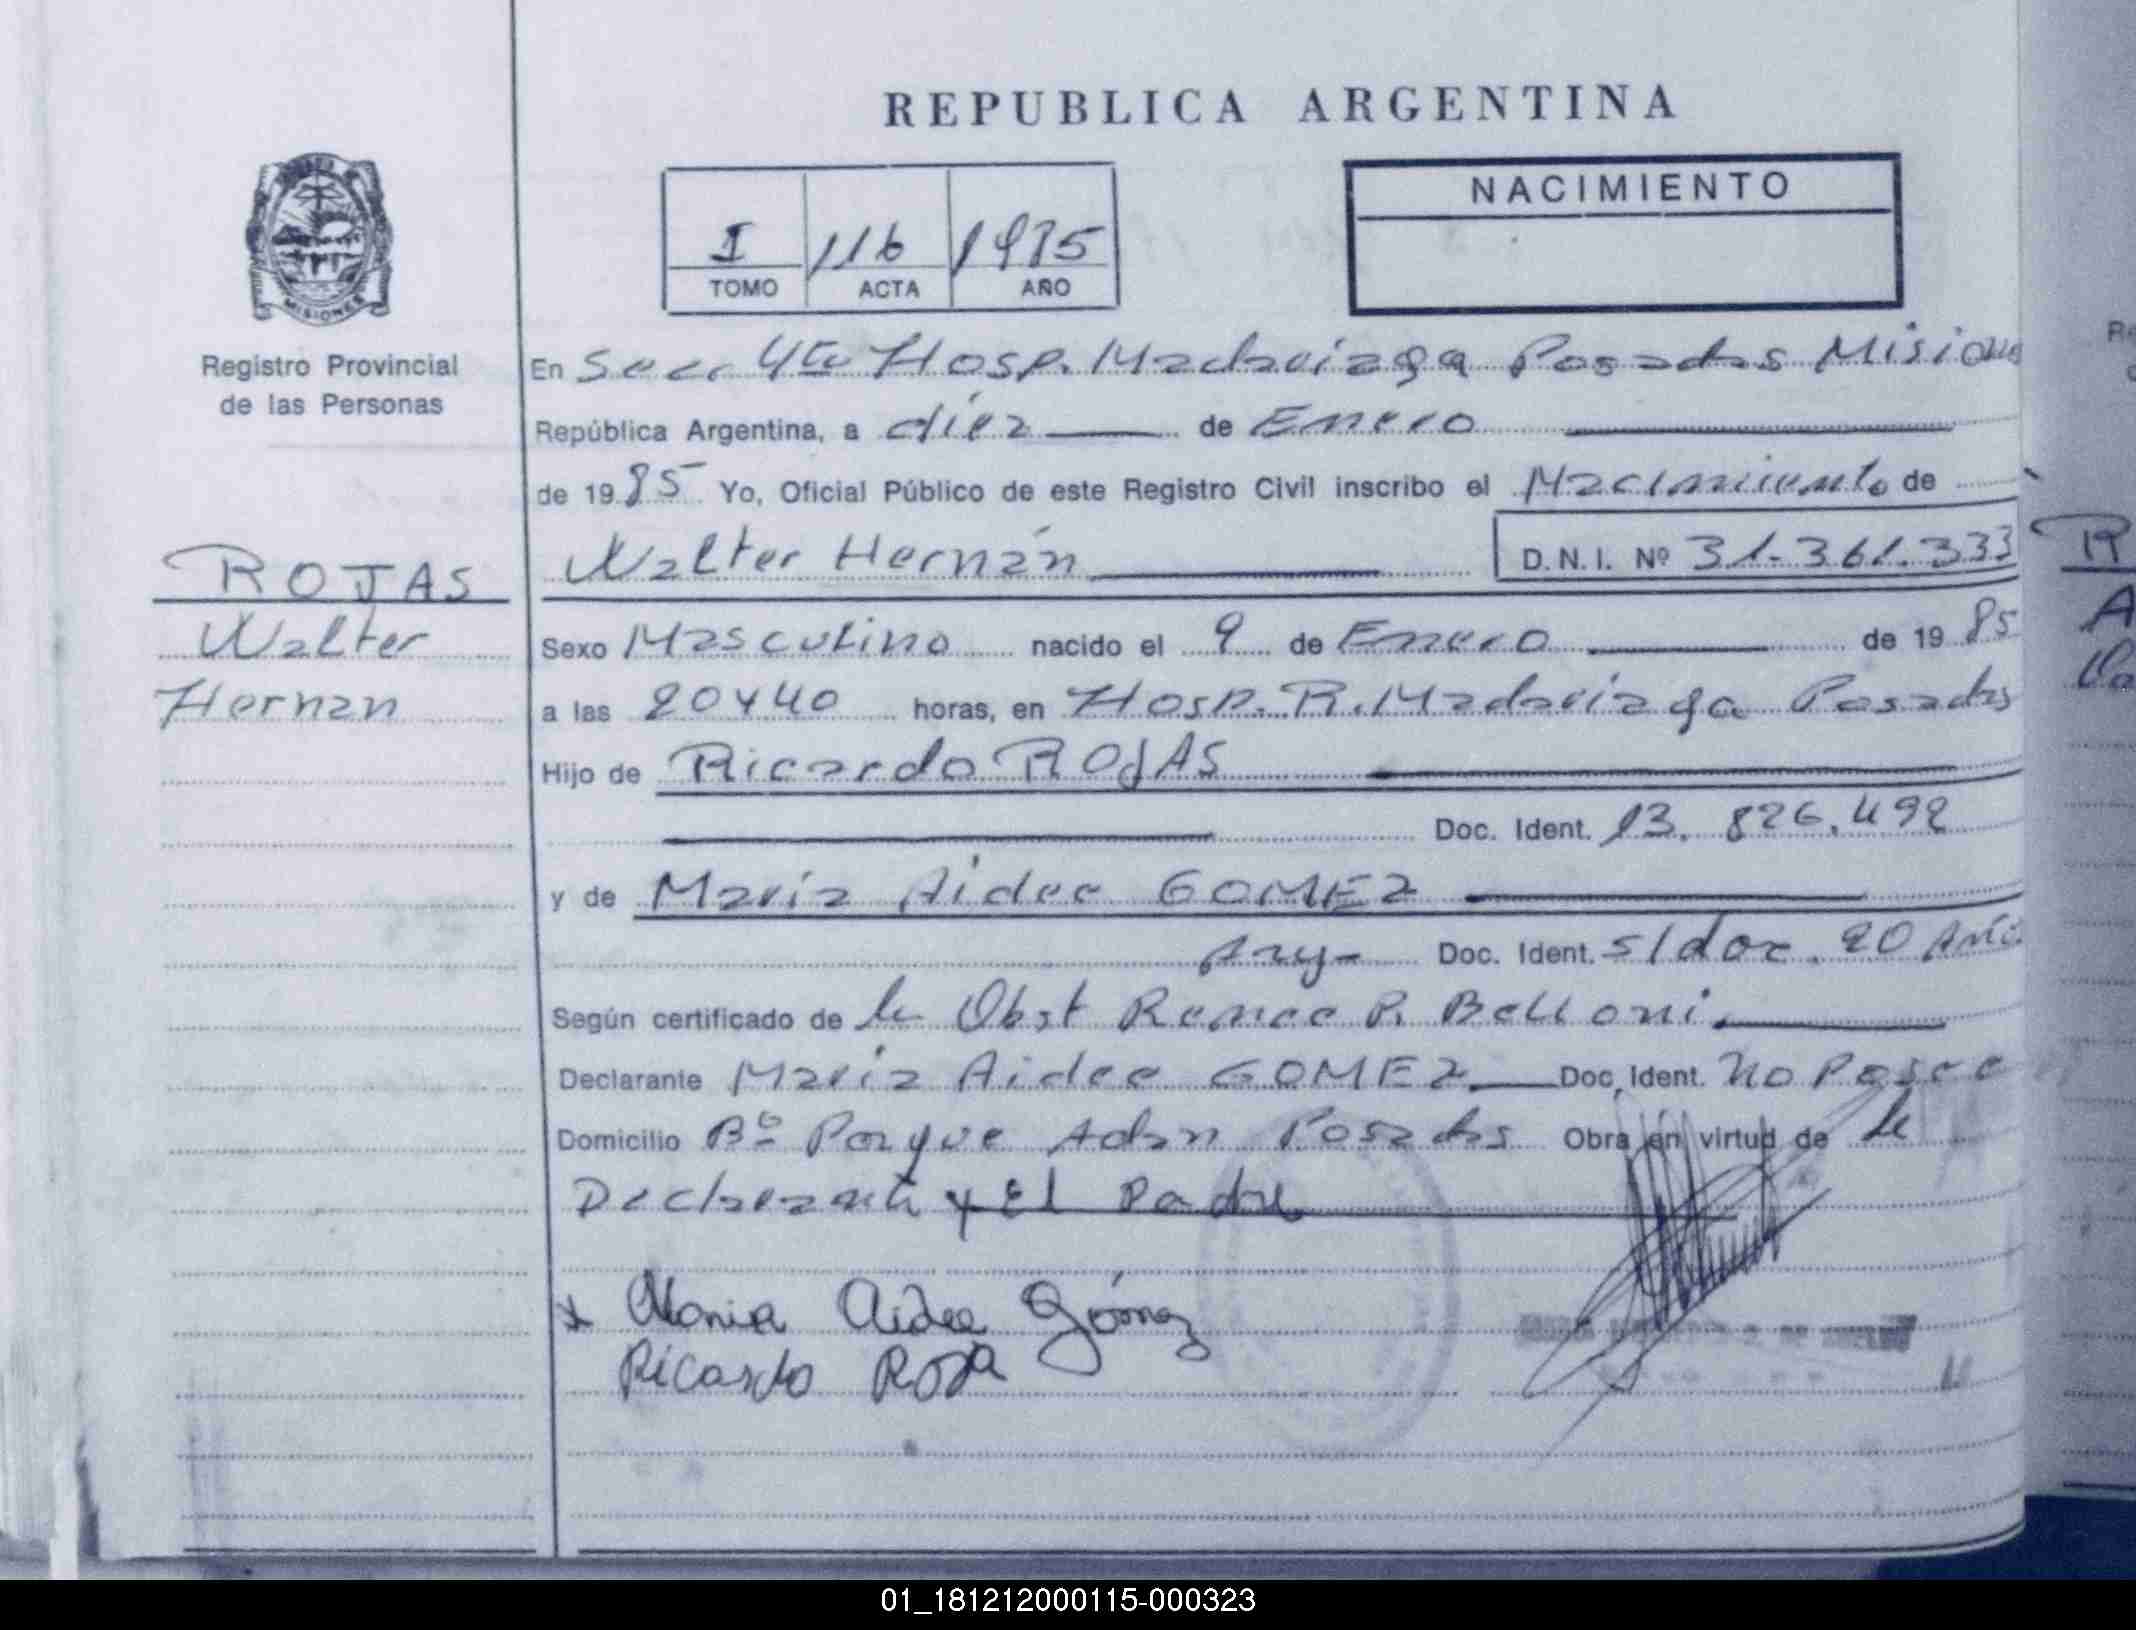 REPUBLICA ARGENTINA
NACIMIENTO
I 116 1985
TOMO ACTA AÑO
MISIONES
Registro Provincial
de las Personas
En Secc 4ta Hosp. Madariaga Posadas Misiones
República Argentina, a diez de Enero
de 1985 Yo, Oficial Público de este Registro Civil inscribo el Nacimiento de
ROJAS
Walter Hernán D.N.I. Nº 31.361.333
Walter
Hernan
Sexo Masculino nacido el 9 de Enero de 1985
a las 20 y 40 horas, en Hosp. R. Madariaga Posadas
Hijo de Ricardo ROJAS
Doc. Ident. 13.826.492
y de María Aidee GOMEZ
Arg- Doc. Ident. s/doc. 20 Años
Según certificado de la Obst Renee P. Belloni.
Declarante María Aidee GOMEZ Doc. Ident. No Posee
Domicilio Bº Parque Adan Posadas Obra en virtud de la
Declarante y El Padre
x Maria Aidee Gómez
Ricardo Roja
01_181212000115-000323